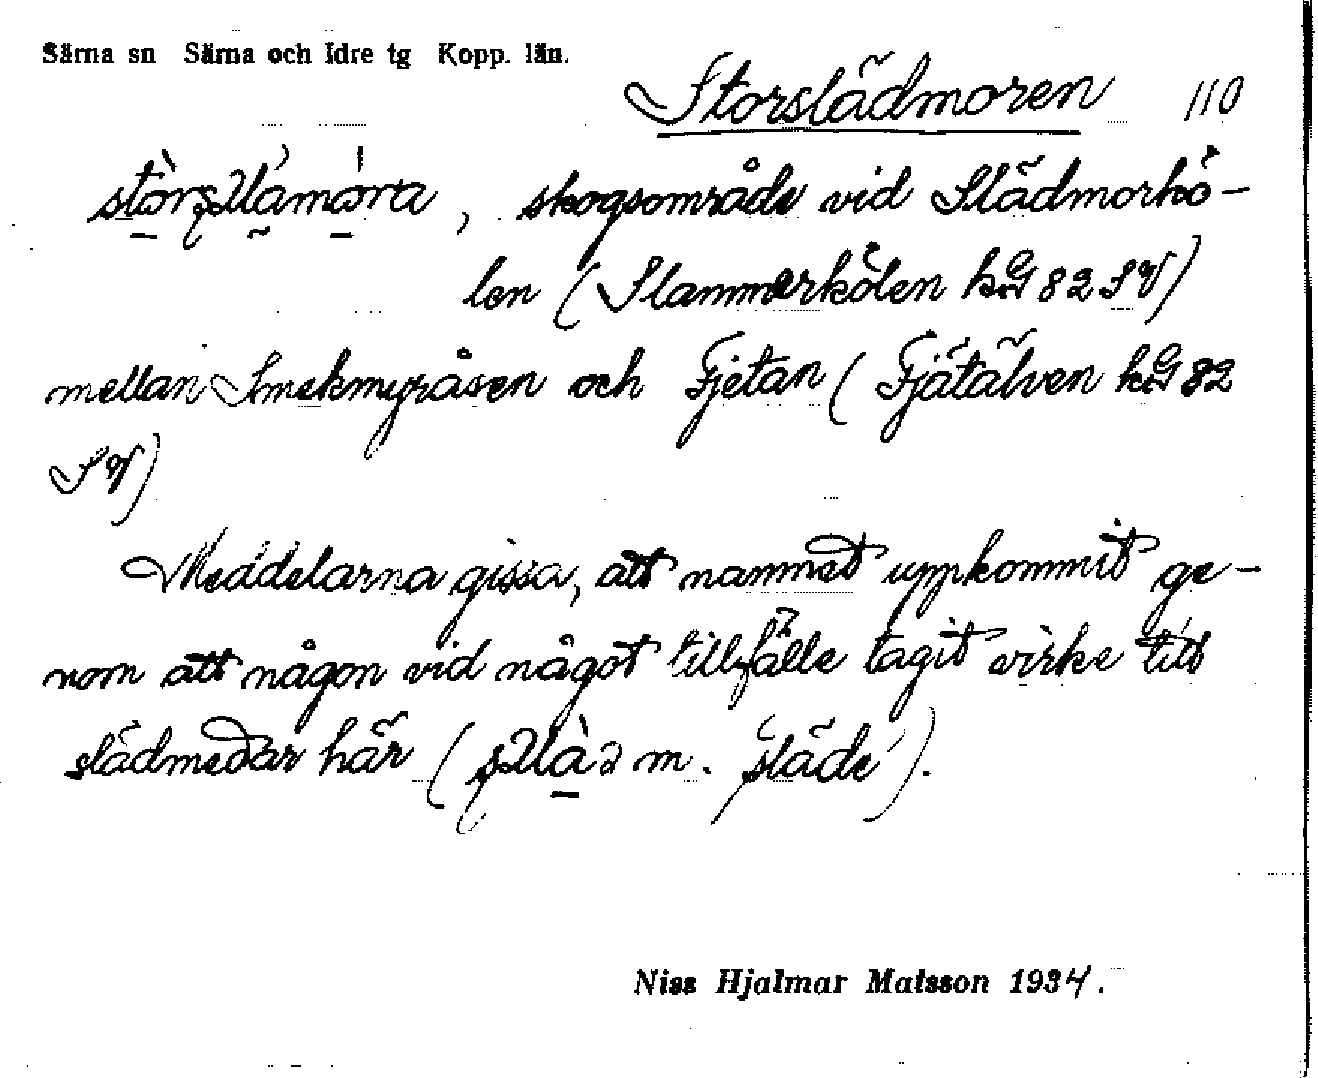 Särna sn Särna och Idre tg Kopp. län.
Storslädmoren 110
, skogsområde vid Slädmorkö-
len (Slammerkölen kbl 82 SV)
mellan Smekmyråsen och Fjetan (Fjätälven kbl 82
SV)
Meddelarna gissa, att namnet uppkommit ge-
nom att någon vid något tillfälle tagit virke till
slädmedar här ( m. släde).
Niss Hjalmar Matsson 1934.